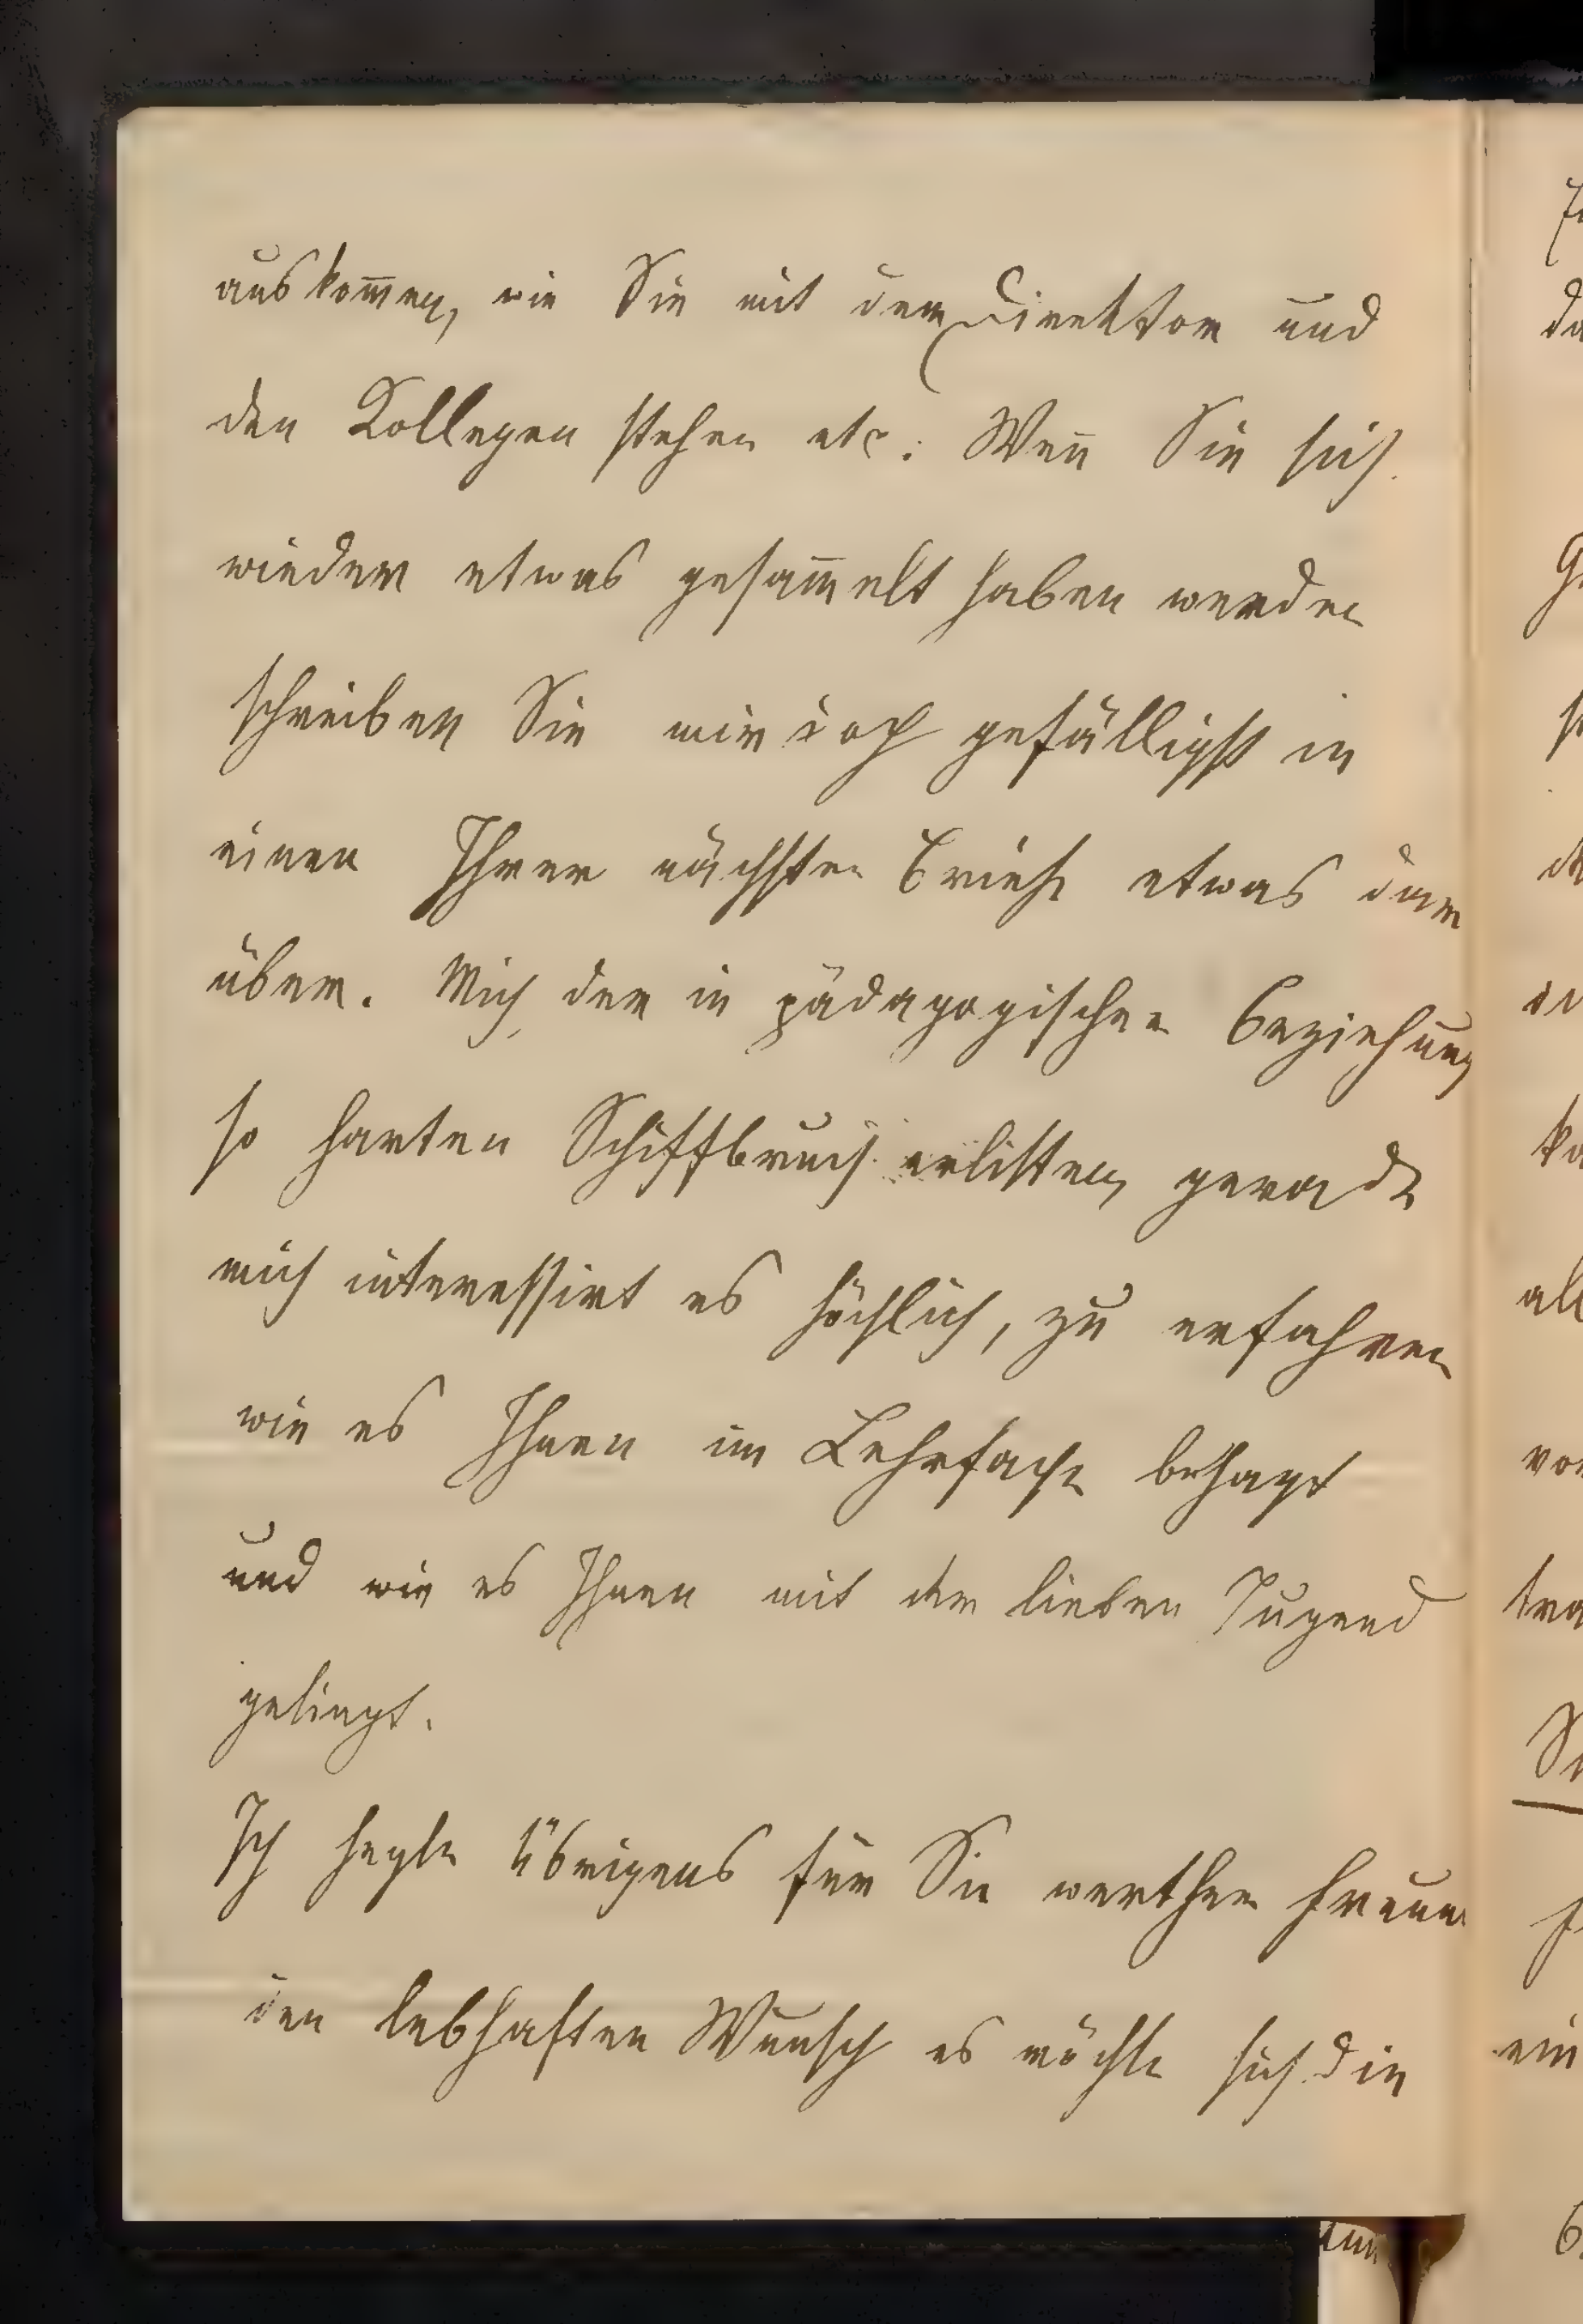 auskom̅en, wie Sie mit dem Direktor und
den Kollegen stehen etc. Wen̅ Sie sich
wieder etwas gesam̅elt haben werden
schreiben Sie mir doch gefälligst in
einen Ihrer nächsten Briefe etwas dar
über. Mich der in pädagogischer Beziehung
so harten Schiffbruch erlitten, gerade
mich interessirt es höchlich, zu erfahren
wie es Ihnen im Lehrfache behagt
und wie es Ihnen mit der lieben Jugend
gelingt.
Ich hegte übrigens für Sie werther Freund
den lebhaften Wunsch es möchte sich die